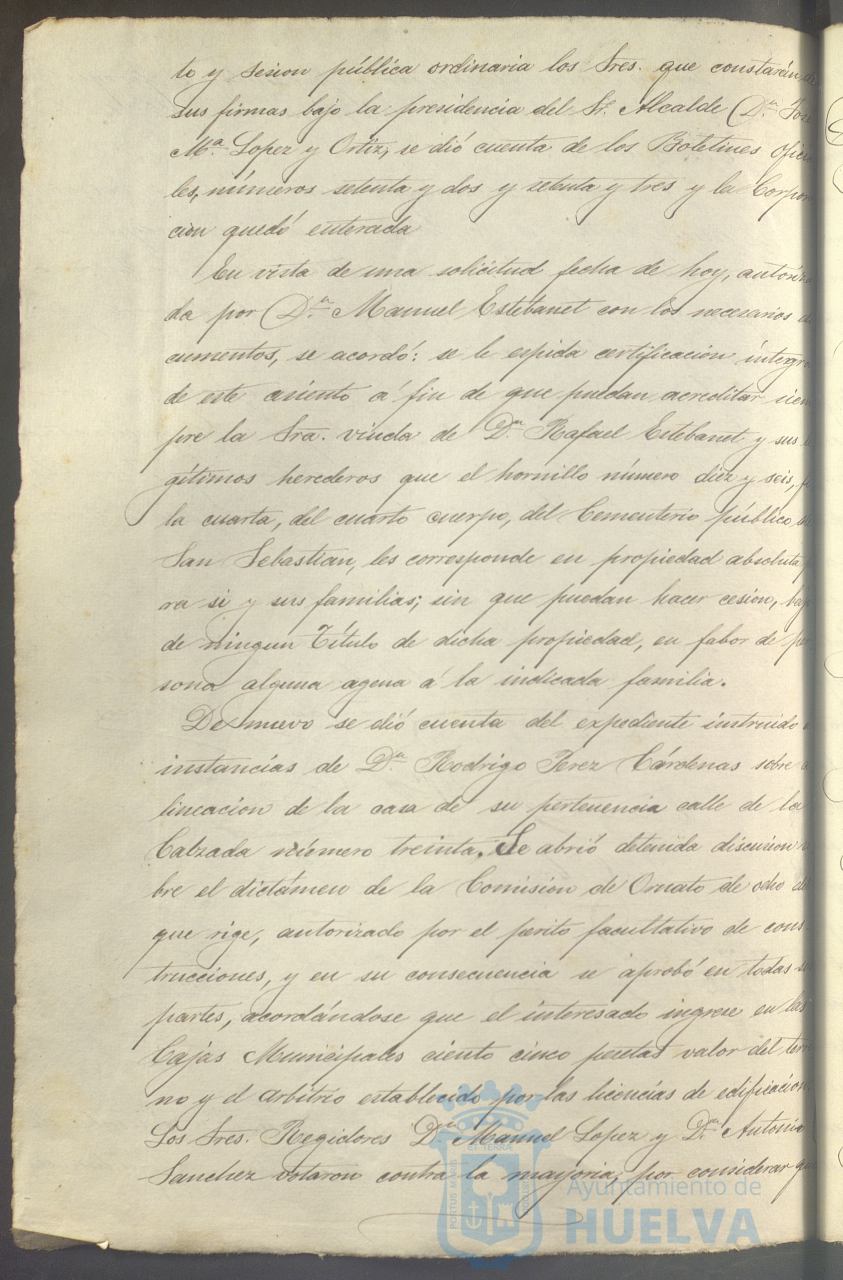 to y sesion pública ordinaria los Sres. que constarán
sus firmas bajo la presidencia del Sr. Alcalde Dn. José
Mª. Lopez y Ortiz, se dió cuenta de los Boletines ofici
les, números setenta y dos y setenta y tres y la Corpor
cion quedó enterada
En vista de una solicitud fecha de hoy, autoriz
da por Dn. Manuel Estebanet con los necesarios d
cumentos, se acordó: se le espida certificación íntegra
de este asiento á fin de que puedan acreditar siem
pre la Sra. viuda de Dn. Rafael Estebanet y sus l
gítimos herederos que el hornillo número diez y seis, f
la cuarta, del cuarto cuerpo, del Cementerio público
San Sebastian, les corresponde en propiedad absoluta, p
ra si y sus familias; sin que puedan hacer cesion, baj
de ningun Título de dicha propiedad, en fabor de pe
sona alguna agena á la indicada familia.
De nuevo se dió cuenta del expediente instruido
instancias de Dn. Rodrigo Perez Cárdenas sobre a
lineacion de la casa de su pertenencia calle de la
Calzada número treinta. Se abrió detenida discusion
bre el dictámen de la Comision de Ornato de ocho del
que rige, autorizado por el perito facultativo de cons
trucciones, y en su consecuencia se aprobó en todas su
partes, acordándose que el interesado ingrese en las
Cajas Municipales ciento cinco pesetas valor del terre
no y el arbitrio establecido por las licencias de edificacion.
Los Sres. Regidores Dn. Manuel Lopez y Dn. Antonio
Sanchez votaron contra la mayoria, por considerar qu
PORTUS MARIS
ET TERRÆ
Ayuntamiento de
HUELVA